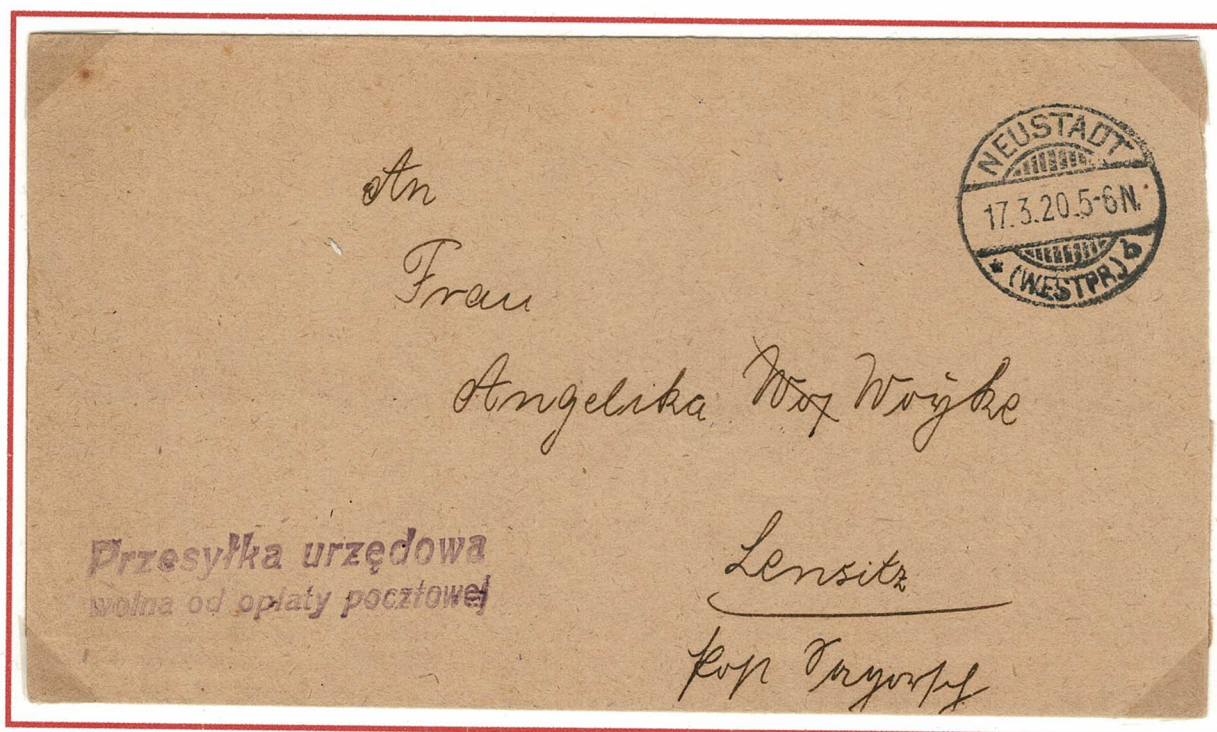 NEUSTADT
17.3.20.5-6N.
* (WESTPR.) b
An
Frau
Angelika Woy Woÿke
Lensitz
Post Sagorsch
Przesyłka urzędowa
wolna od opłaty pocztowej